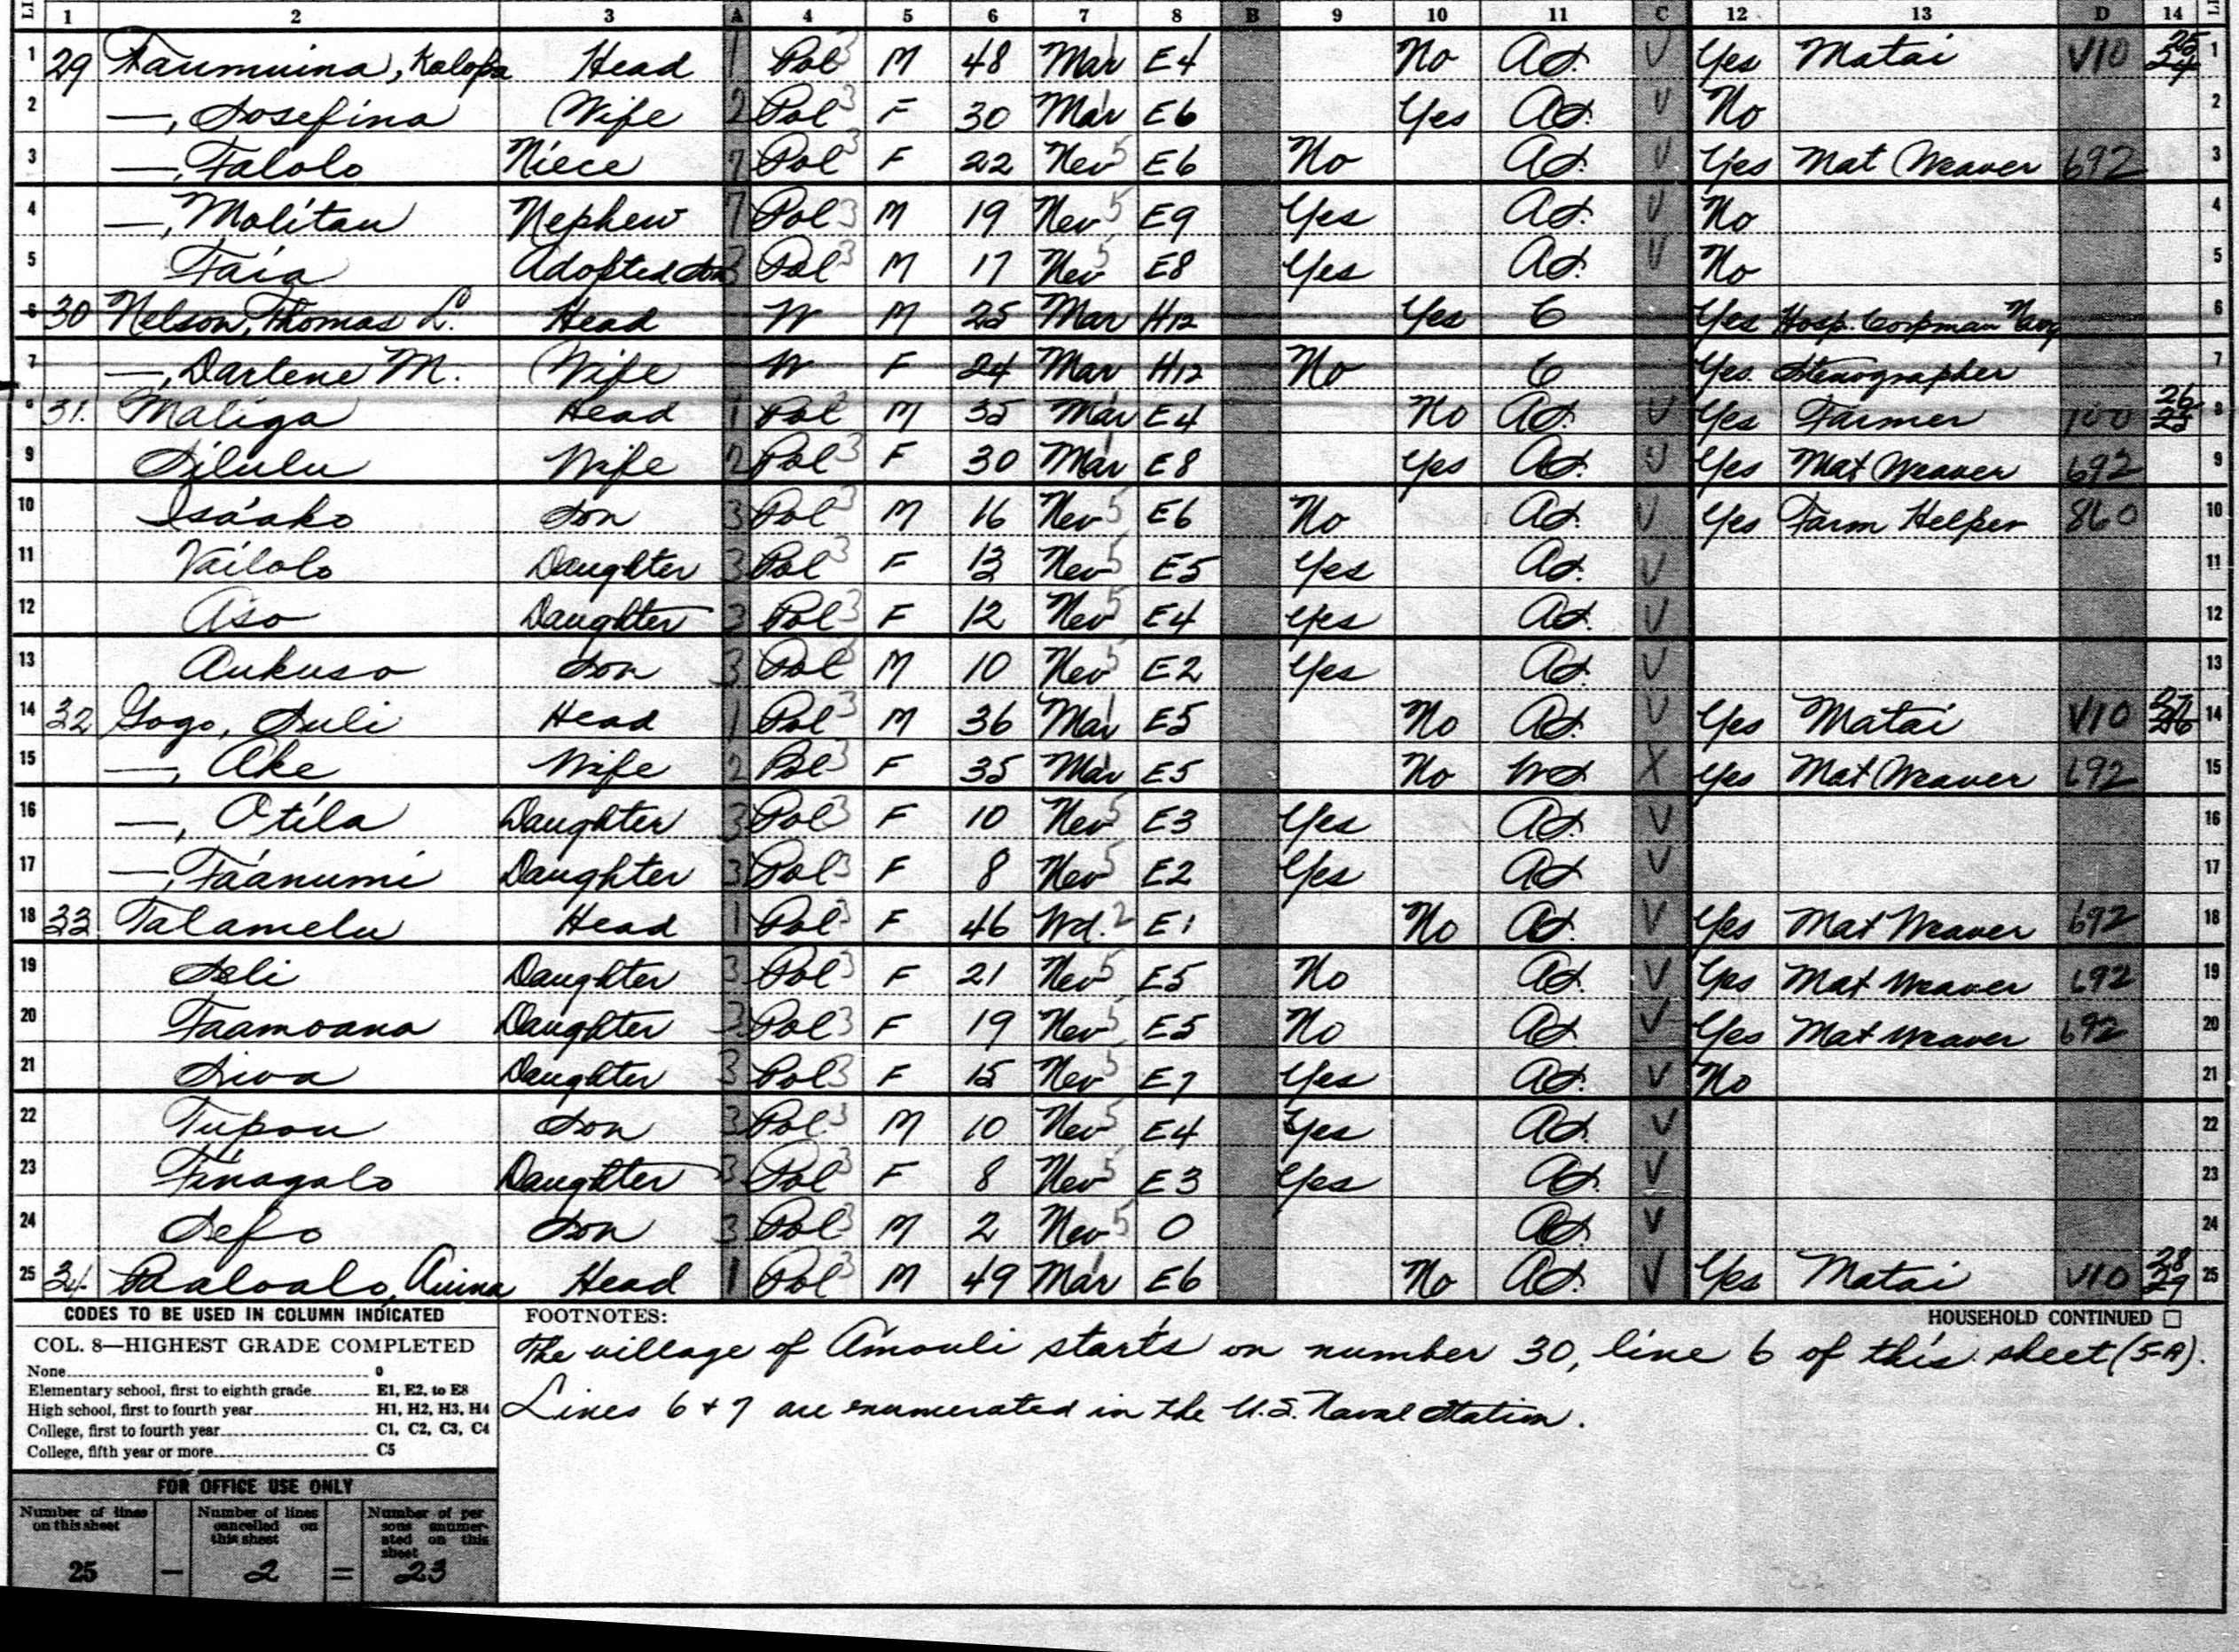 LI 1 2 3 A 4 5 6 7 8 B 9 10 11 C 12 13 D 14 LI
1 29 Faumuina, Kalopa Head 1 Pol 3 M 48 Mar 1 E4 No AS. V Yes Matai V10 25 24 1
2 —, Sosefina Wife 2 Pol 3 F 30 Mar 1 E6 Yes AS. V No 2
3 —, Falolo Niece 7 Pol 3 F 22 Nev 5 E6 No AS. V Yes Mat Weaver 692 3
4 —, Molitau Nephew 7 Pol 3 M 19 Nev 5 E9 Yes AS. V No 4
5 Faia Adopted Son 3 Pol 3 M 17 Nev 5 E8 Yes AS. V No 5
6 30 Nelson, Thomas L. Head W M 25 Mar H12 Yes C Yes Hosp. Corpman Navy 6
7 —, Darlene M. Wife W F 24 Mar H12 No C Yes. Stenographer 7
8 31. Maliga Head 1 Pol 3 M 35 Mar 1 E4 No AS. V Yes Farmer 100 26 25 8
9 Silulu Wife 2 Pol 3 F 30 Mar 1 E8 Yes AS. V Yes Mat Weaver 692 9
10 Isa'ako Son 3 Pol 3 M 16 Nev 5 E6 No AS. V Yes Farm Helper 860 10
11 Vailolo Daughter 3 Pol 3 F 13 Nev 5 E5 Yes AS. V 11
12 Aso Daughter 3 Pol 3 F 12 Nev 5 E4 Yes AS. V 12
13 Aukuso Son 3 Pol 3 M 10 Nev 5 E2 Yes AS. V 13
14 32 Gogo, Suli Head 1 Pol 3 M 36 Mar 1 E5 No AS. V Yes Matai V10 27 26 14
15 —, Ake Wife 2 Pol 3 F 35 Mar 1 E5 No WS X Yes Mat Weaver 692 15
16 —, Otila Daughter 3 Pol 3 F 10 Nev 5 E3 Yes AS. V 16
17 —, Fa'anumi Daughter 3 Pol 3 F 8 Nev 5 E2 Yes AS V 17
18 33 Talamelu Head 1 Pol 3 F 46 Wd. 2 E1 No AS. V Yes Mat Weaver 692 18
19 Seli Daughter 3 Pol 3 F 21 Nev 5 E5 No AS. V Yes Mat Weaver 692 19
20 Faamoana Daughter 3 Pol 3 F 19 Nev 5 E5 No AS V Yes Mat Weaver 692 20
21 Siva Daughter 3 Pol 3 F 15 Nev 5 E7 Yes AS. V No 21
22 Tupou Son 3 Pol 3 M 10 Nev 5 E4 Yes AS. V 22
23 Finagalo Daughter 3 Pol 3 F 8 Nev 5 E3 Yes AS. V 23
24 Sefo Son 3 Pol 3 M 2 Nev 5 0 AS. V 24
25 34. Paaloalo, Auina Head 1 Pol 3 M 49 Mar 1 E6 No AS. V Yes Matai V10 28 27 25
CODES TO BE USED IN COLUMN INDICATED
COL. 8—HIGHEST GRADE COMPLETED
None 0
Elementary school, first to eighth grade E1, E2, to E8
High school, first to fourth year H1, H2, H3, H4
College, first to fourth year C1, C2, C3, C4
College, fifth year or more C5
FOOTNOTES: HOUSEHOLD CONTINUED ☐
The village of Amouli starts on number 30, line 6 of this sheet (5-A).
Lines 6 + 7 are enumerated in the U.S. Naval Station.
FOR OFFICE USE ONLY
Number of lines on this sheet
25
—
Number of lines cancelled on this sheet
2
=
Number of persons enumerated on this sheet
23